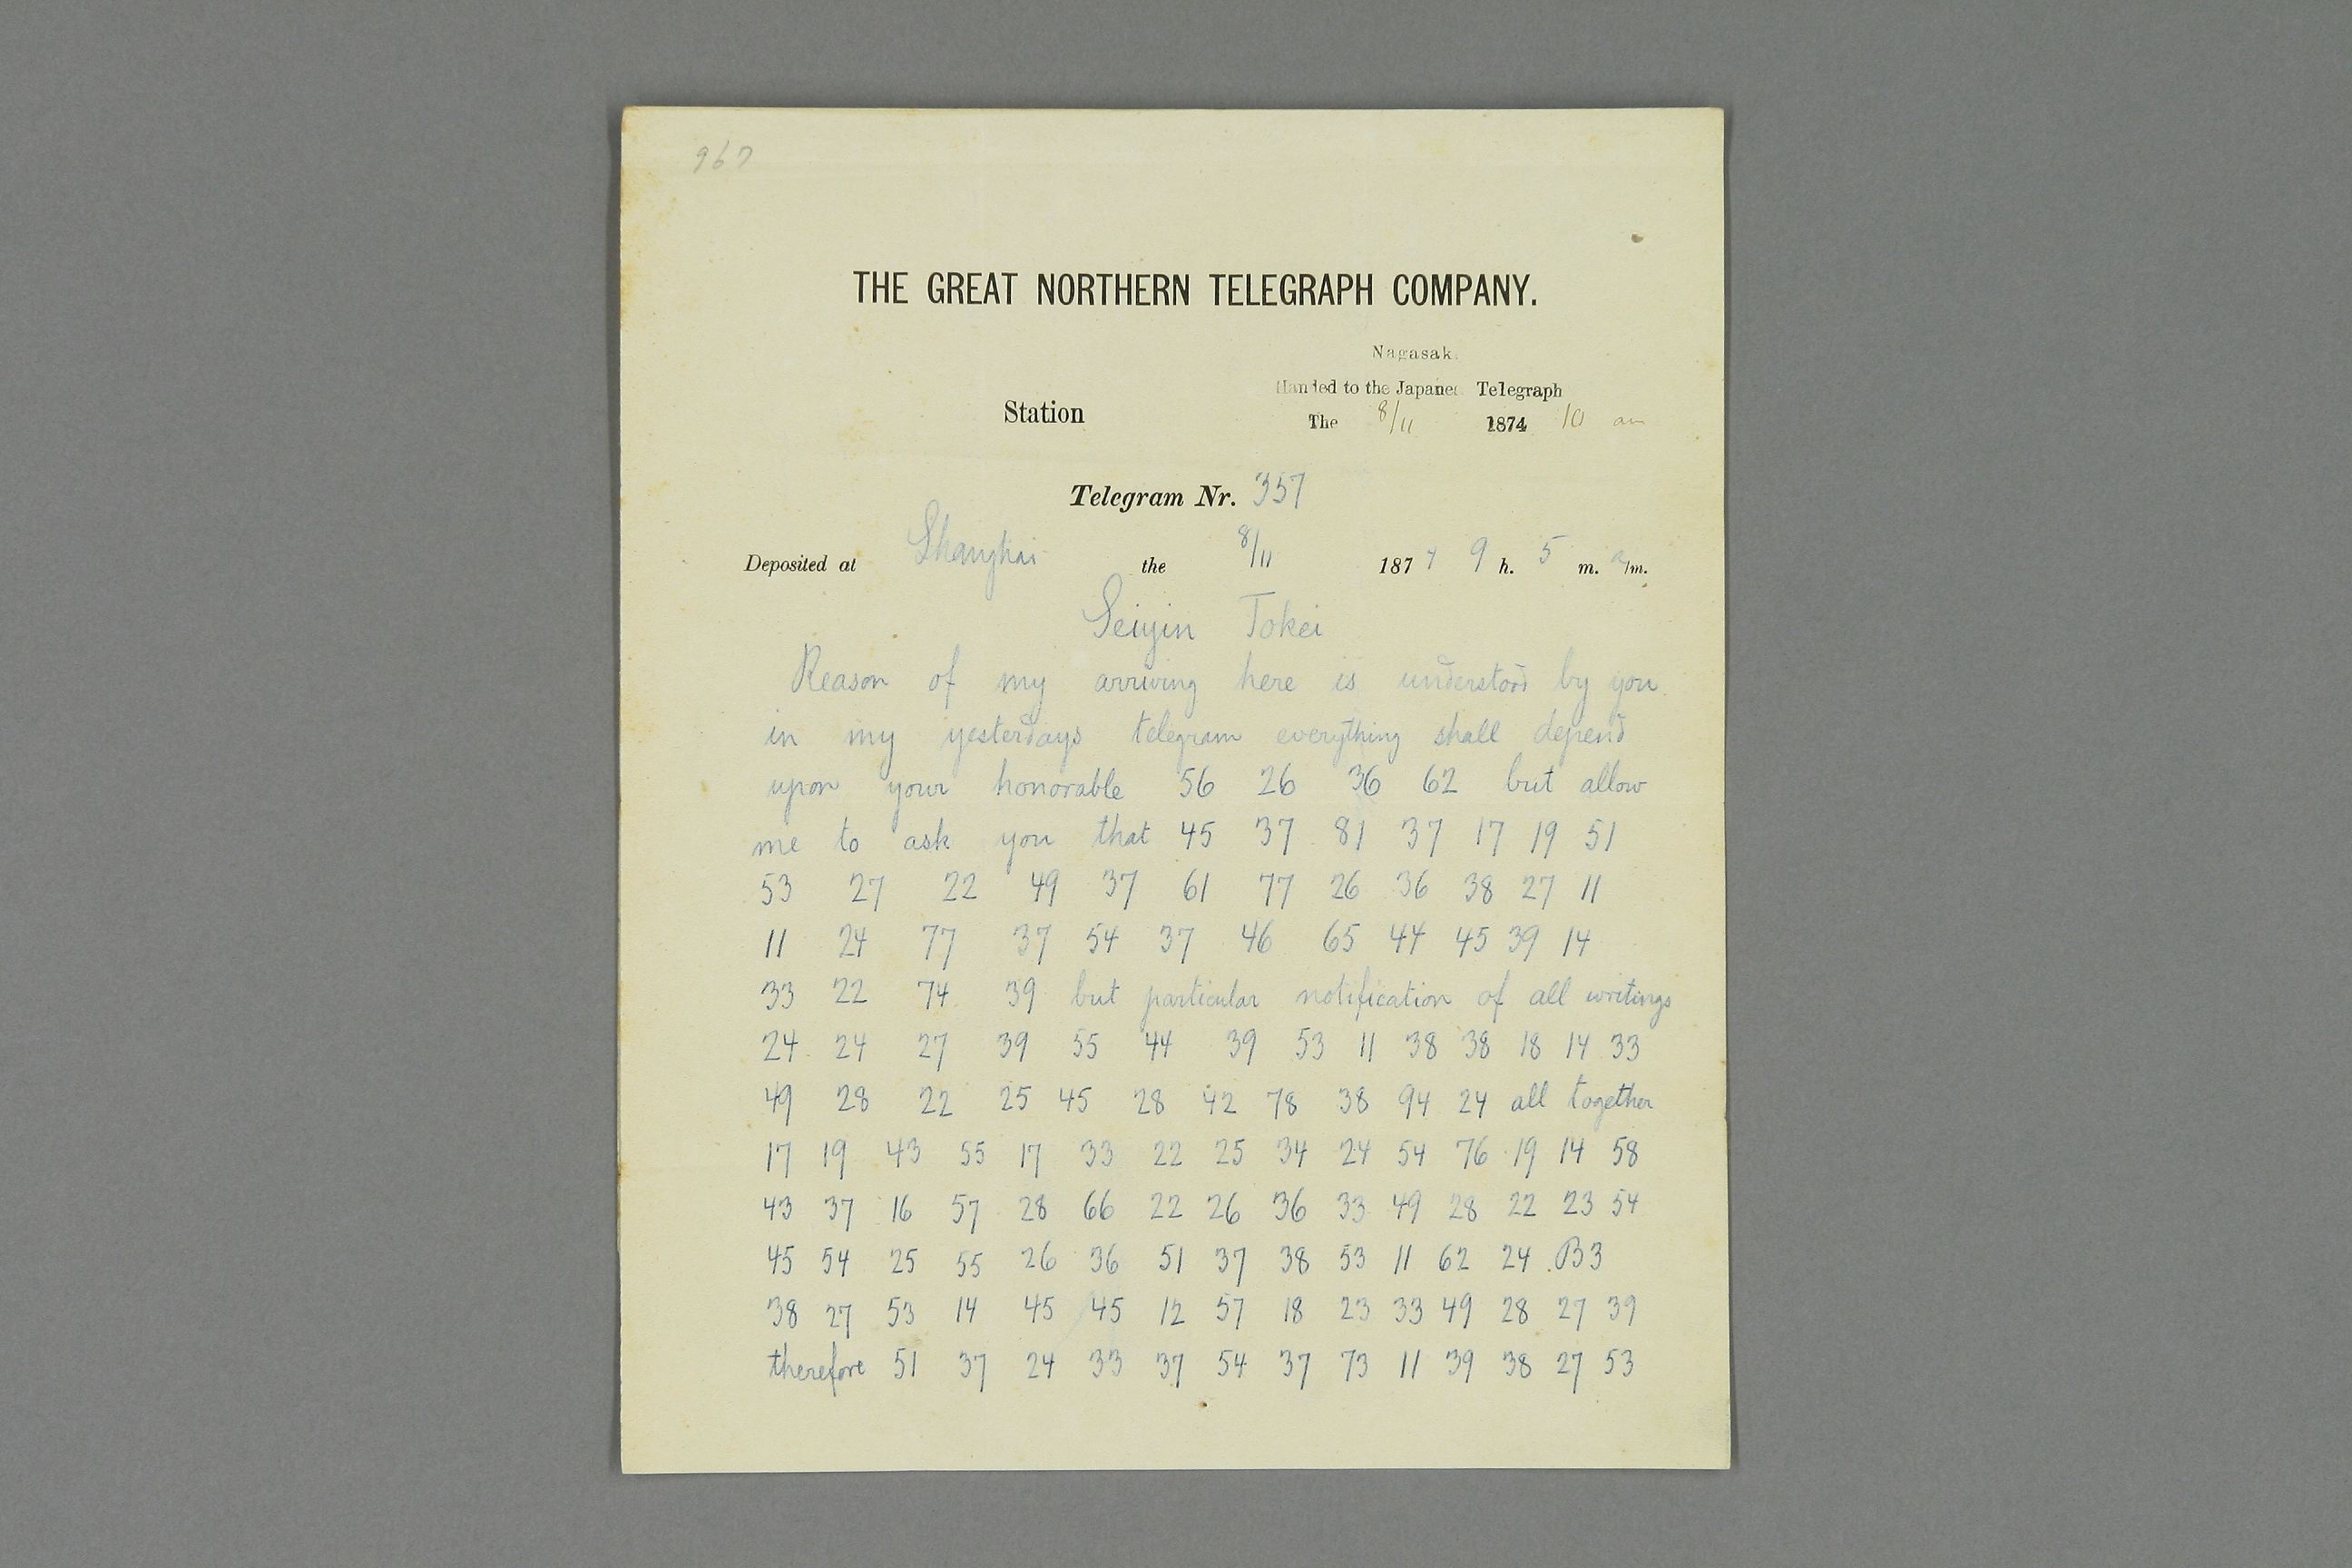 967
THE GREAT NORTHERN TELEGRAPH COMPANY.
Nagasak
Handed to the Japanes Telegraph
Station
The 8/11 1874 10 am
Telegram Nr. 357
Deposited at Shanghai the 8/11 1874 9 h. 5 m. a/m.
Seiyin Tokei
Reason of my arriving here is understood by you
in my yesterdays telegram everything shall depend
upon your honorable 56 26 36 62 but allow
me to ask you that 45 37 81 37 17 19 51
53 27 22 49 37 61 77 26 36 38 27 11
11 24 77 37 54 37 46 65 44 45 39 14
33 22 74 39 but particular notification of all writings
24 24 27 39 55 44 39 53 11 38 38 18 14 33
49 28 22 25 45 28 42 78 38 94 24 all together
17 19 43 55 17 33 22 25 34 24 54 76 19 14 58
43 37 16 57 28 66 22 26 36 33 49 28 22 23 54
45 54 25 55 26 36 51 37 38 53 11 62 24 B3
38 27 53 14 45 45 12 57 18 23 33 49 28 27 39
therefore 51 37 24 33 37 54 37 73 11 39 38 27 53